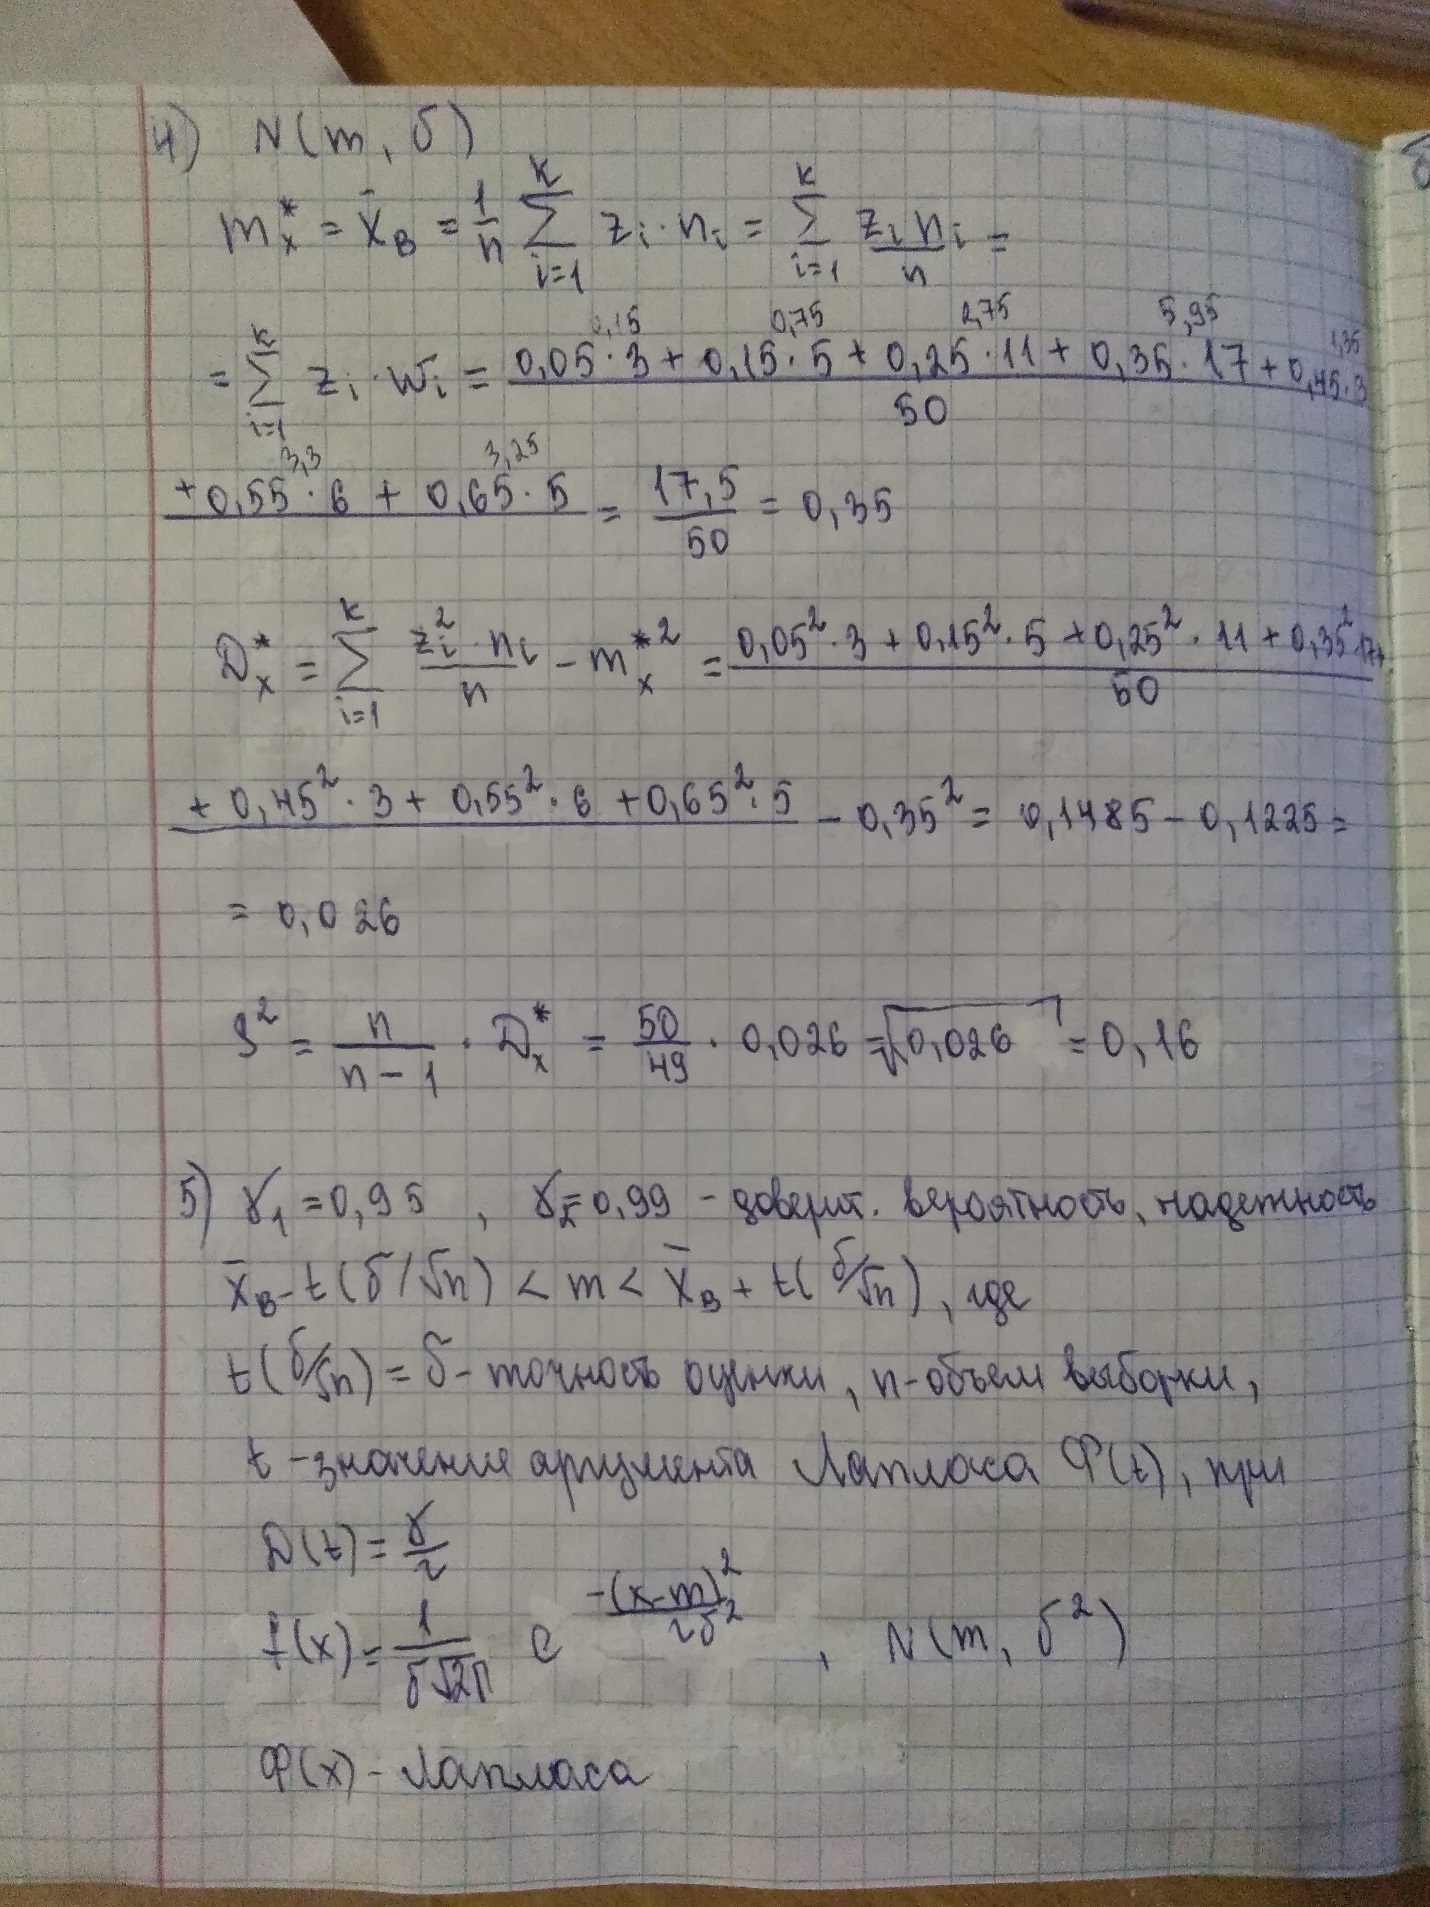 4) N(m, σ)
m*ₓ = x̄_B = 1/n ∑_{i=1}^{k} zᵢ · nᵢ = ∑_{i=1}^{k} zᵢ nᵢ / n =
0,15 0,75 2,75 5,95 1,35
= ∑_{i=1}^{k} zᵢ · wᵢ = (0,05 · 3 + 0,15 · 5 + 0,25 · 11 + 0,35 · 17 + 0,45 · 3) / 50
3,3 3,25
+ 0,55 · 6 + 0,65 · 5 = 17,5 / 50 = 0,35
D*ₓ = ∑_{i=1}^{k} zᵢ² · nᵢ / n − m*ₓ² = (0,05² · 3 + 0,15² · 5 + 0,25² · 11 + 0,35² · 17 +) / 50
+ 0,45² · 3 + 0,55² · 6 + 0,65² · 5 − 0,35² = 0,1485 − 0,1225 =
= 0,026
S² = n / (n − 1) · D*ₓ = 50/49 · 0,026 = √0,026 = 0,16
5) γ₁ = 0,95 , γ₂ = 0,99 – доверит. вероятность, надежность
x̄_B − t(σ/√n) < m < x̄_B + t(σ/√n), где
t(σ/√n) = δ – точность оценки, n – объем выборки,
t – значение аргумента Лапласа Ф(t), при
D(t) = γ/2
f(x) = 1/(σ√2π) e^{−(x−m)²/2σ²} , N(m, σ²)
Ф(x) – Лапласа